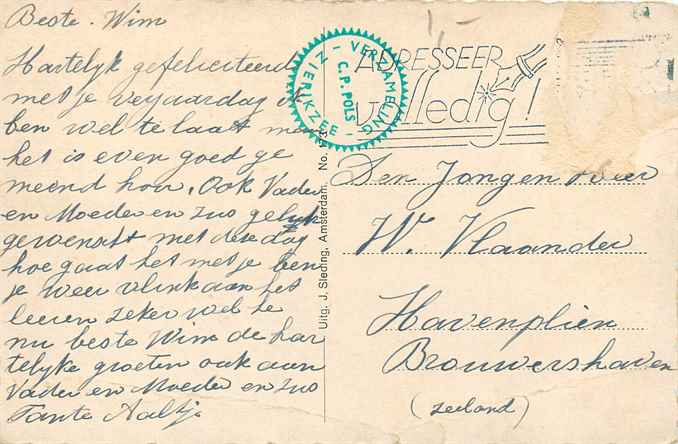 Beste Wim
Hartelijk gefeliciteerd
met je verjaardag ik
ben wel te laat maar
het is even goed ge
meend hou. Ook Vader
en Moeder en Zus gelijk
gewenst met deze dag
hoe gaat het met je ben
je weer vlink aan het
leeren zeker wel te
nu beste Wim de har
telijke groeten ook aan
Vader en Moeder en Zus
Tante Aaltje
Uitg. J. Sleding, Amsterdam. No.
VERZAMELING
C.P. POLS
- ZIERIKZEE -
1-
ADRESSEER
volledig!
Den Jongen heer
W. Vlaander
Havenplien
Brouwershaven
(Zeeland)